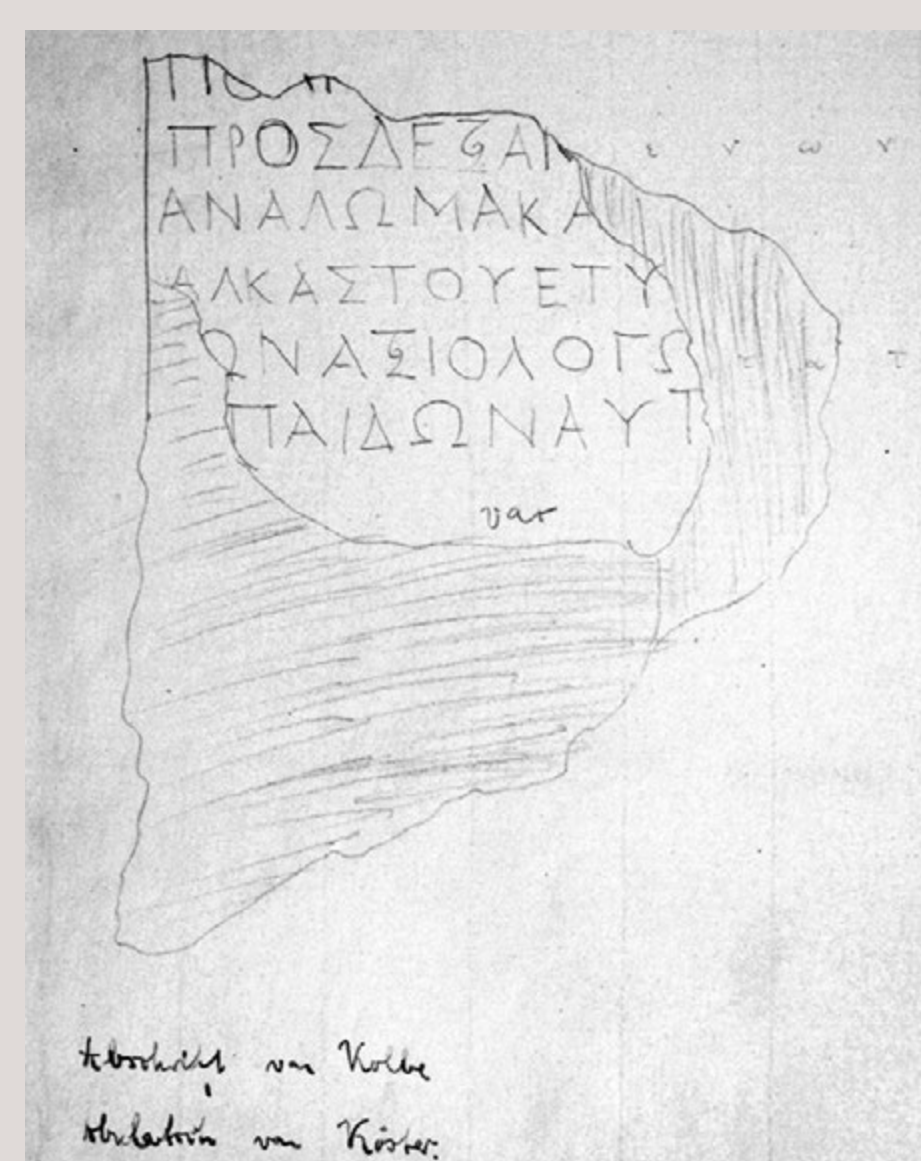 ΠΡΟΣΔΕΞΑΙ ε ν ω ν
ΑΝΑΛΩΜΑΚΑ
ΑΛΚΑΣΤΟΥΕΤΥ
ΩΝΑΞΙΟΛΟΓΩ τ α τ
ΠΑΙΔΩΝΑΥΤ
vac
Abschrift von Kolbe
von Köster.